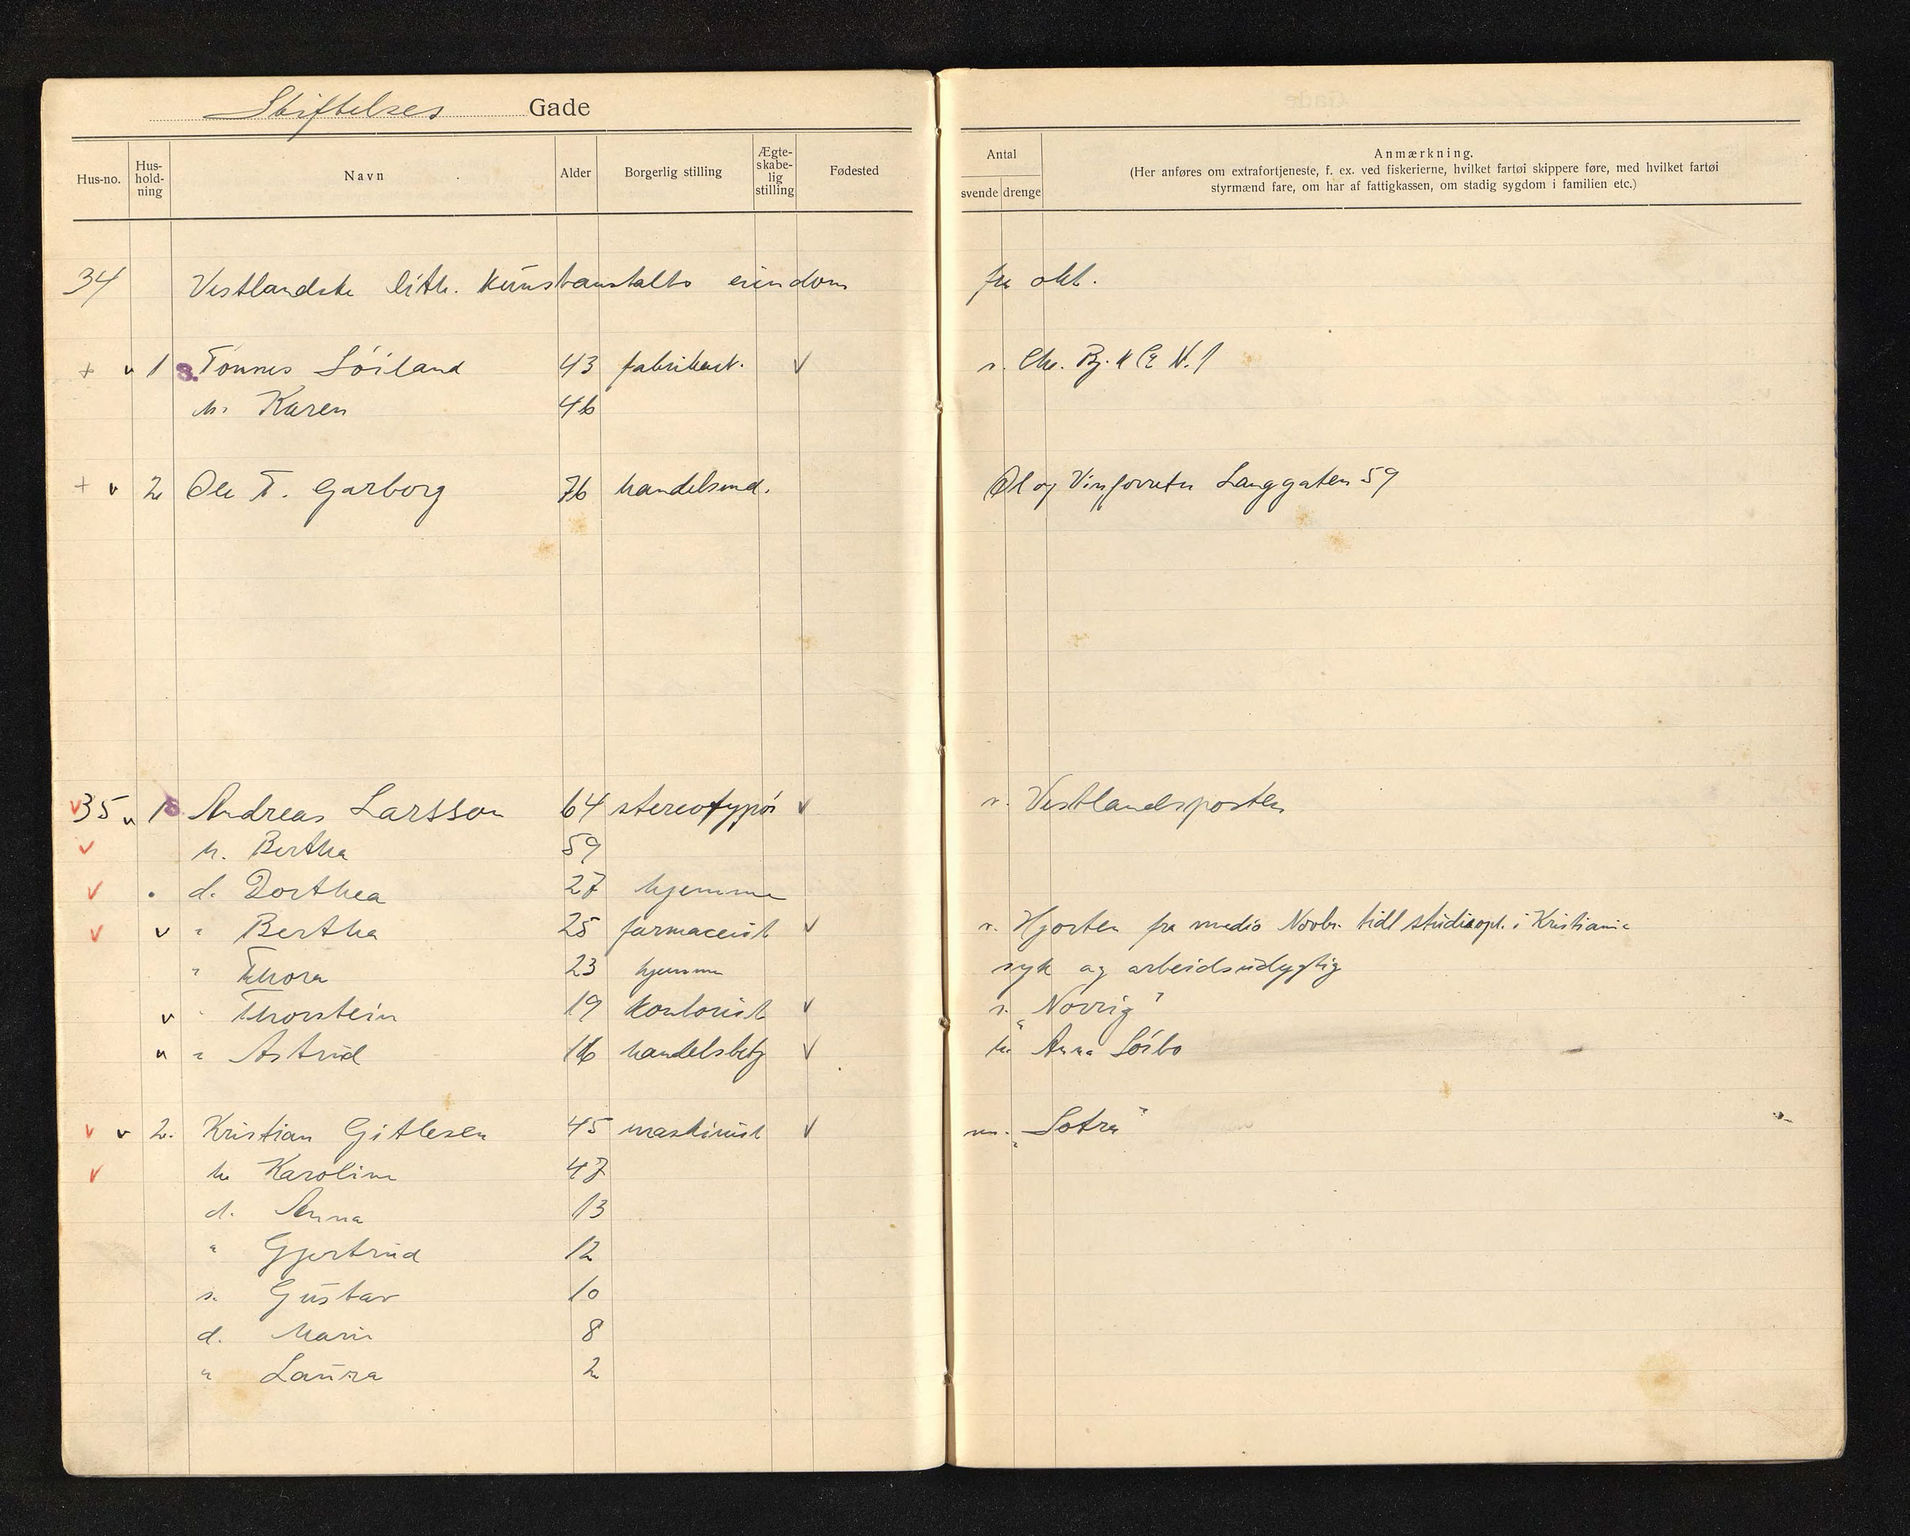 Stiftelses Gade
Hus-no. Hus-hold-ning Navn Alder Borgerlig stilling Ægte-skabe-lig stilling Fødested
Antal svende drenge
Anmærkning.
(Her anføres om extrafortjeneste, f. ex. ved fiskerierne, hvilket fartøi skippere føre, med hvilket fartøi
styrmænd fare, om har af fattigkassen, om stadig sygdom i familien etc.)
34 Vestlandske lith. kunstanstalts eiendom fra okt.
+ v 1 S. Tønnes Söiland 43 fabrikart. v
h. Karen 46
+ v 2 Ole T. Garborg 76 handelsmd. Øl og Vinforretn Langgaten 59
v 35 v 1 S Andreas Larsson 64 stereotypör v v. Vestlandsposten
v h. Bertha 59
v . d. Dorthea 27 hjemme
v v " Bertha 25 farmaceut v v. Hjorten fra medio Novbr. tidl studieopl. i Kristiania
" Thora 23 hjemme syk og arbeidsudygtig
v " Thorstein 19 kontorist v v. "Norrig"
v " Astrid 16 handelsbetj v h. Anna Söibo
v v 2. Kristian Gitlesen 45 maskinist v m. "Sotra"
v h. Karoline 47
d. Anna 13
" Gjertrud 12
s. Gustav 10
d. Marie 8
" Laura 2